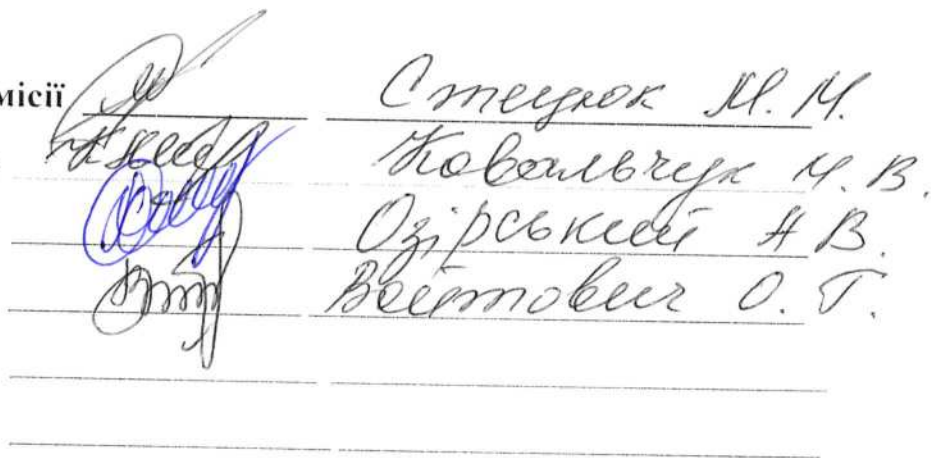 місії Стецюк М. М.
Ковальчук М. В.
Озірський А В.
Войтович О. Т.